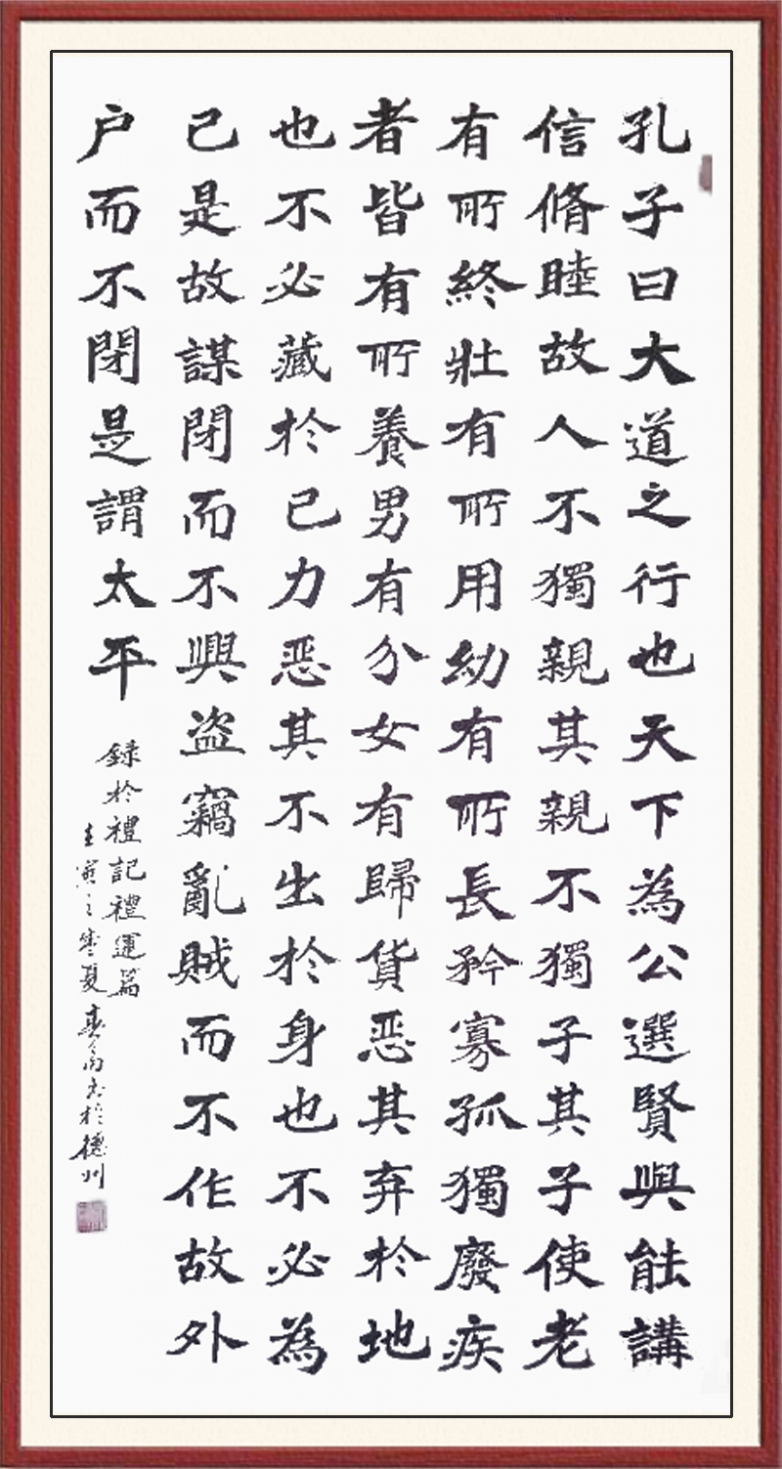 孔子曰大道之行也天下為公選賢與能講
信脩睦故人不獨親其親不獨子其子使老
有所終壯有所用幼有所長矜寡孤獨廢疾
者皆有所養男有分女有歸貨恶其弃於地
也不必藏於己力恶其不出於身也不必為
己是故謀閉而不興盗竊亂賊而不作故外
户而不閉是謂太平
録於禮記禮運篇
壬寅之寒夏 书於德州